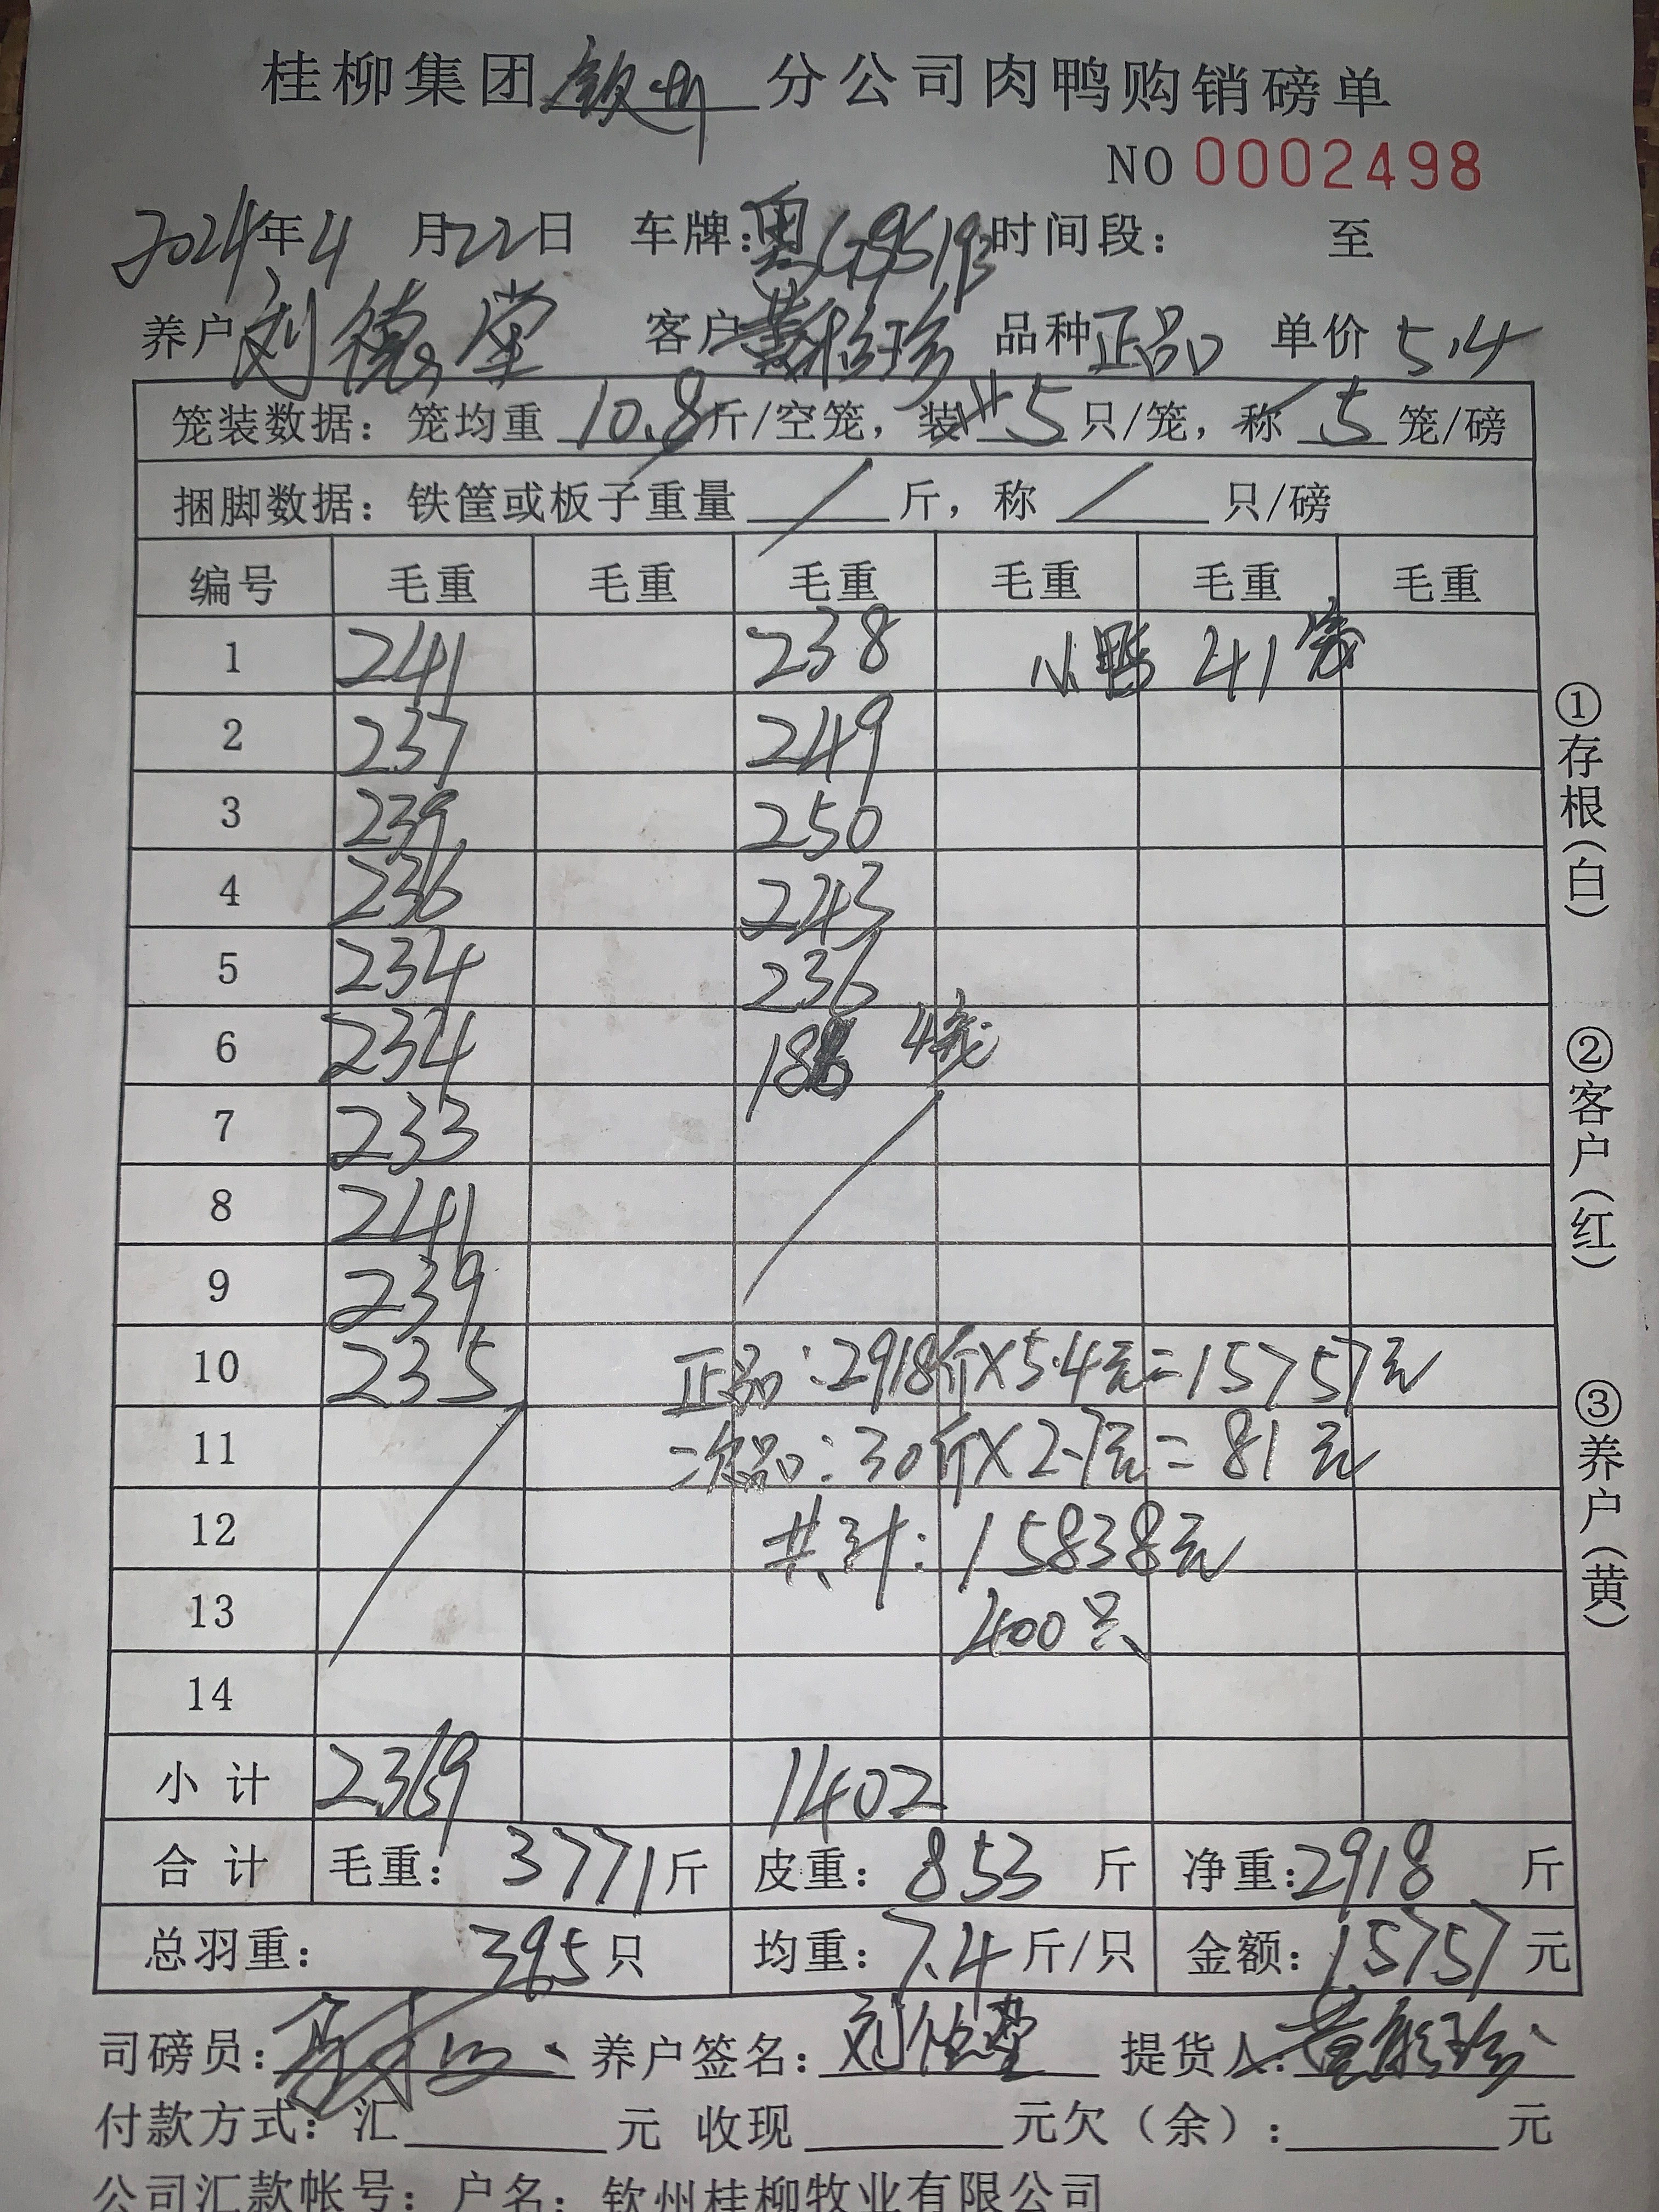 桂柳集团钦州分公司肉鸭购销磅单
NO 0002498
2024年4月22日 车牌: 时间段: 至
养户刘德堂 客户黄 珍 品种正品 单价5.4
笼装数据: 笼均重10.8斤/空笼, 装 5只/笼, 称5笼/磅
捆脚数据: 铁筐或板子重量/斤, 称/只/磅
编号 毛重 毛重 毛重 毛重 毛重 毛重
1 241 238 小鸭 41笼
2 237 249
3 239 250
4 236 243
5 234 236
6 234 18 4笼
7 233
8 241
9 239
10 235 正品:2918斤×5.4元=15757元
11 二次品:30斤×2.7元=81元
12 共计:15838元
13 400只
14
小计 2369 1402
合计 毛重: 3771斤 皮重: 853斤 净重:2918斤
总羽重: 395只 均重: 7.4斤/只 金额: 15757元
司磅员: 养户签名: 刘德堂 提货人: 黄 珍
付款方式: 汇 元 收现 元欠(余): 元
公司汇款帐号: 户名: 钦州桂柳牧业有限公司
①存根(白)
②客户(红)
③养户(黄)